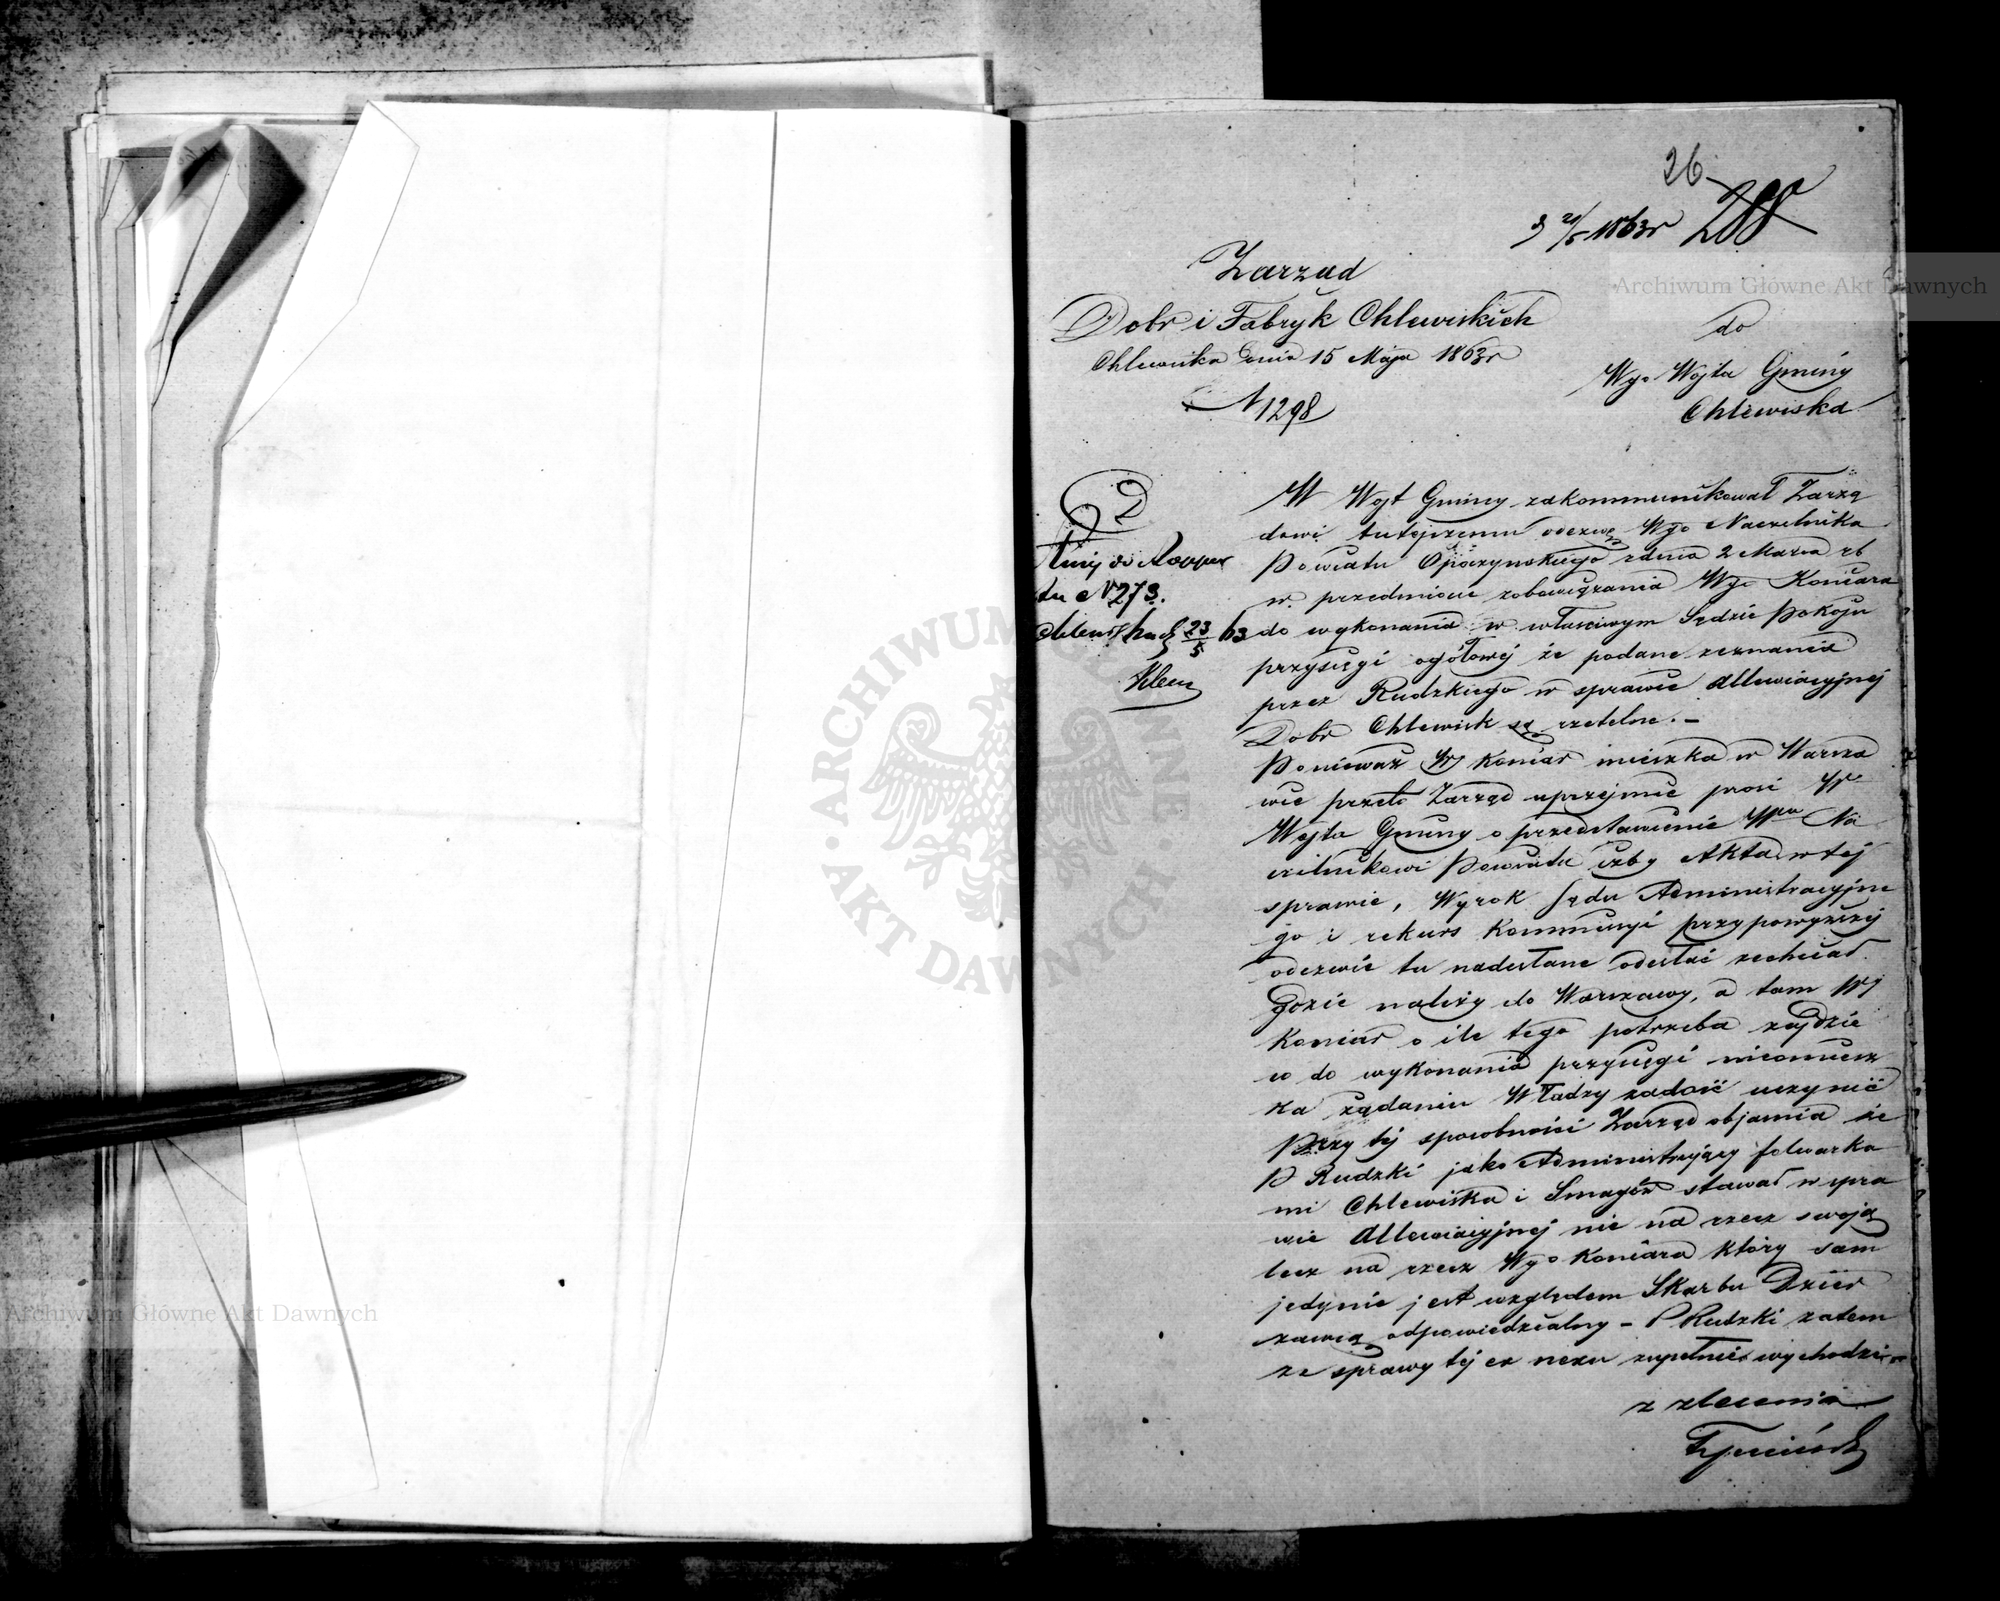 26
288
21/5 1863r
Zarząd
Dobr i Fabryk Chlewiskich
Chlewiska dnia 15 Maja 1863r
N 1298
do
Wgo Wojta Gminy
Chlewiska
W Wojt Gminy zakommunikował Zarzą
dowi tutejszemu odezwę Wgo Naczelnika
Powiatu Opoczynskiego z dnia 2 Marca rb
w przedmiocie zobowiązania Wgo Koniara
do wykonania w własciwym Sądzie Pokoju
przysięgi ogółowej że podane zeznania
przez Rudzkiego w sprawie allewiacyjnej
Dobr Chlewisk są rzetelne. –
Ponieważ Wy Koniar mieszka w Warsza
wie przeto Zarząd uprzejmie prosi W
Wojta Gminy o przedstawienie Wmu Na
czelnikowi Powiatu iżby Akta w tej
sprawie, Wyrok Sądu Administracyjne
go i rekurs Kommissyi przy powyższej
odezwie tu nadesłane odesłać zechciał
gdzie należy do Warszawy, a tam Wy
Koniar o ile tego potrzeba zajdzie
co do wykonania przysięgi nieomiesz
ka żądaniu Władzy zadość uczynić
Przy tej sposobności Zarząd objawia że
P Rudzki jako Administrujący folwarka
mi Chlewiska i Smagów stawał w spra
wie allewiacyjnej nie na rzecz swoją
lecz na rzecz Wgo Koniara który sam
jedynie jest względem Skarbu Dzier
zawcą odpowiedzialny – P Rudzki zatem
ze sprawy tej ex nexu zupełnie wychodzi –
z zlecenia
do Rappor
tu N 273.
23/5 63
Archiwum Główne Akt Dawnych
Archiwum Główne Akt Dawnych
ARCHIWUM GŁÓWNE AKT DAWNYCH